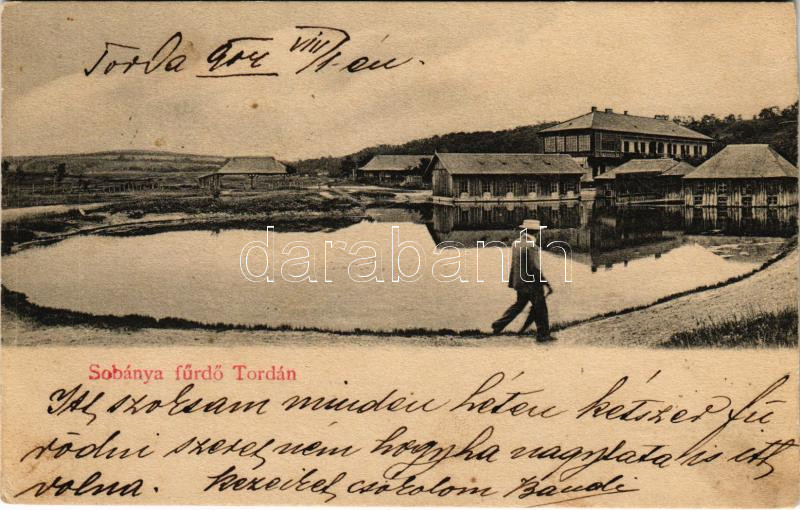 Torda 904 VIII/1-én.
darabanth
Sobánya fűrdő Tordán
Itt szoktam minden héten kétszer fü
rödni szeretném hogyha nagytata is itt
volna. Kezeiket csókolom Bandi